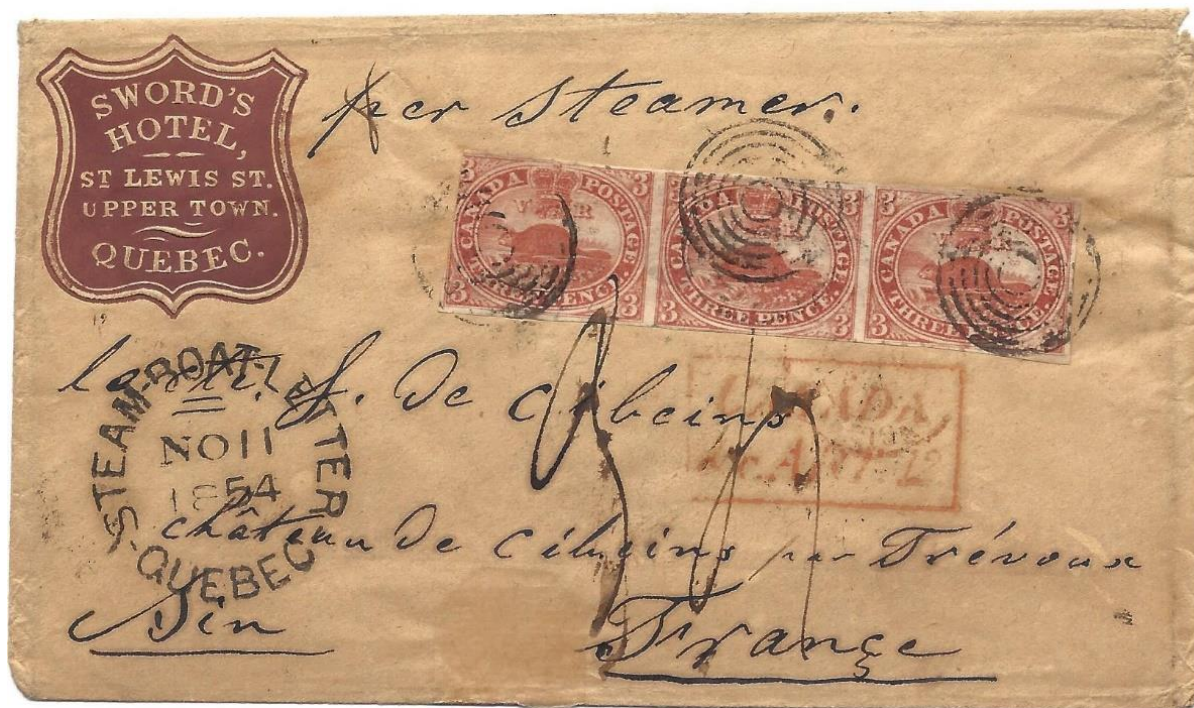 SWORD'S
HOTEL,
ST LEWIS ST.
UPPER TOWN.
QUEBEC.
per Steamer.
3 CANADA POSTAGE. 3
3 THREE PENCE. 3
3 CANADA POSTAGE. 3
3 THREE PENCE. 3
3 CANADA POSTAGE. 3
3 THREE PENCE. 3
CANADA,
STEAM-BOAT-LETTER
NO 11
1854
QUEBEC
de Cibeins
château de Cibeins par Trévoux
Ain
France